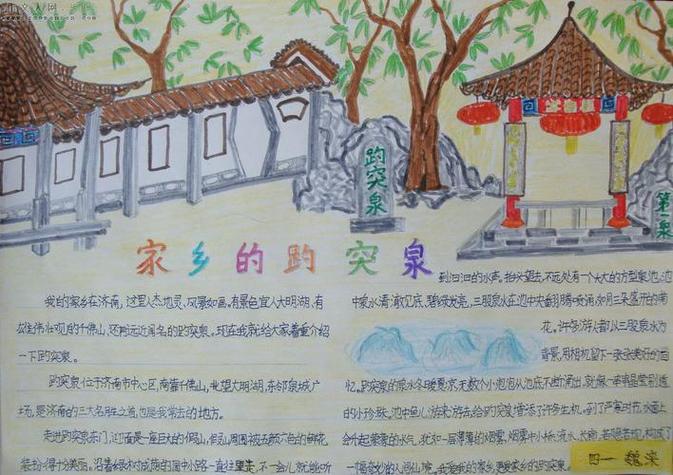 趵突泉
第一泉
家乡的趵突泉
我的家乡在济南，这里人杰地灵、风景如画。有景色宜人大明湖、有
雄伟壮观的千佛山，还有远近闻名的趵突泉。现在我就给大家着重介绍
一下趵突泉。
趵突泉位于济南市中心区，南靠千佛山，北望大明湖，东邻泉城广
场，是济南的三大名胜之首，也是我常去的地方。
走进趵突泉东门，迎面是一座巨大的假山，假山周围被五颜六色的鲜花
装扮得十分美丽。沿着绿树成荫的园中小路一直往里走，不一会儿就能听
到汩汩的水声。抬头望去，不远处有一个大大的方型泉池，池
中泉水清澈见底、碧绿发亮，三股泉水在池中央翻腾喷涌，如同三朵盛开的南
花。许多游人都以三股泉水为
背景，用相机留下一张张美好的回
忆。趵突泉的泉水冬暖夏凉，无数个小泡泡从池底不断涌出，就像一串串晶莹剔透
的小珍珠。池中鱼儿游来游去给趵突泉增添了许多生机。到了严寒时节，水面上
会升起袅袅的水气，犹如一层薄薄的烟雾，烟雾中小桥、流水、长廊、
一幅奇妙的人间仙境。我爱我的家乡，更爱家乡的趵突泉
四一